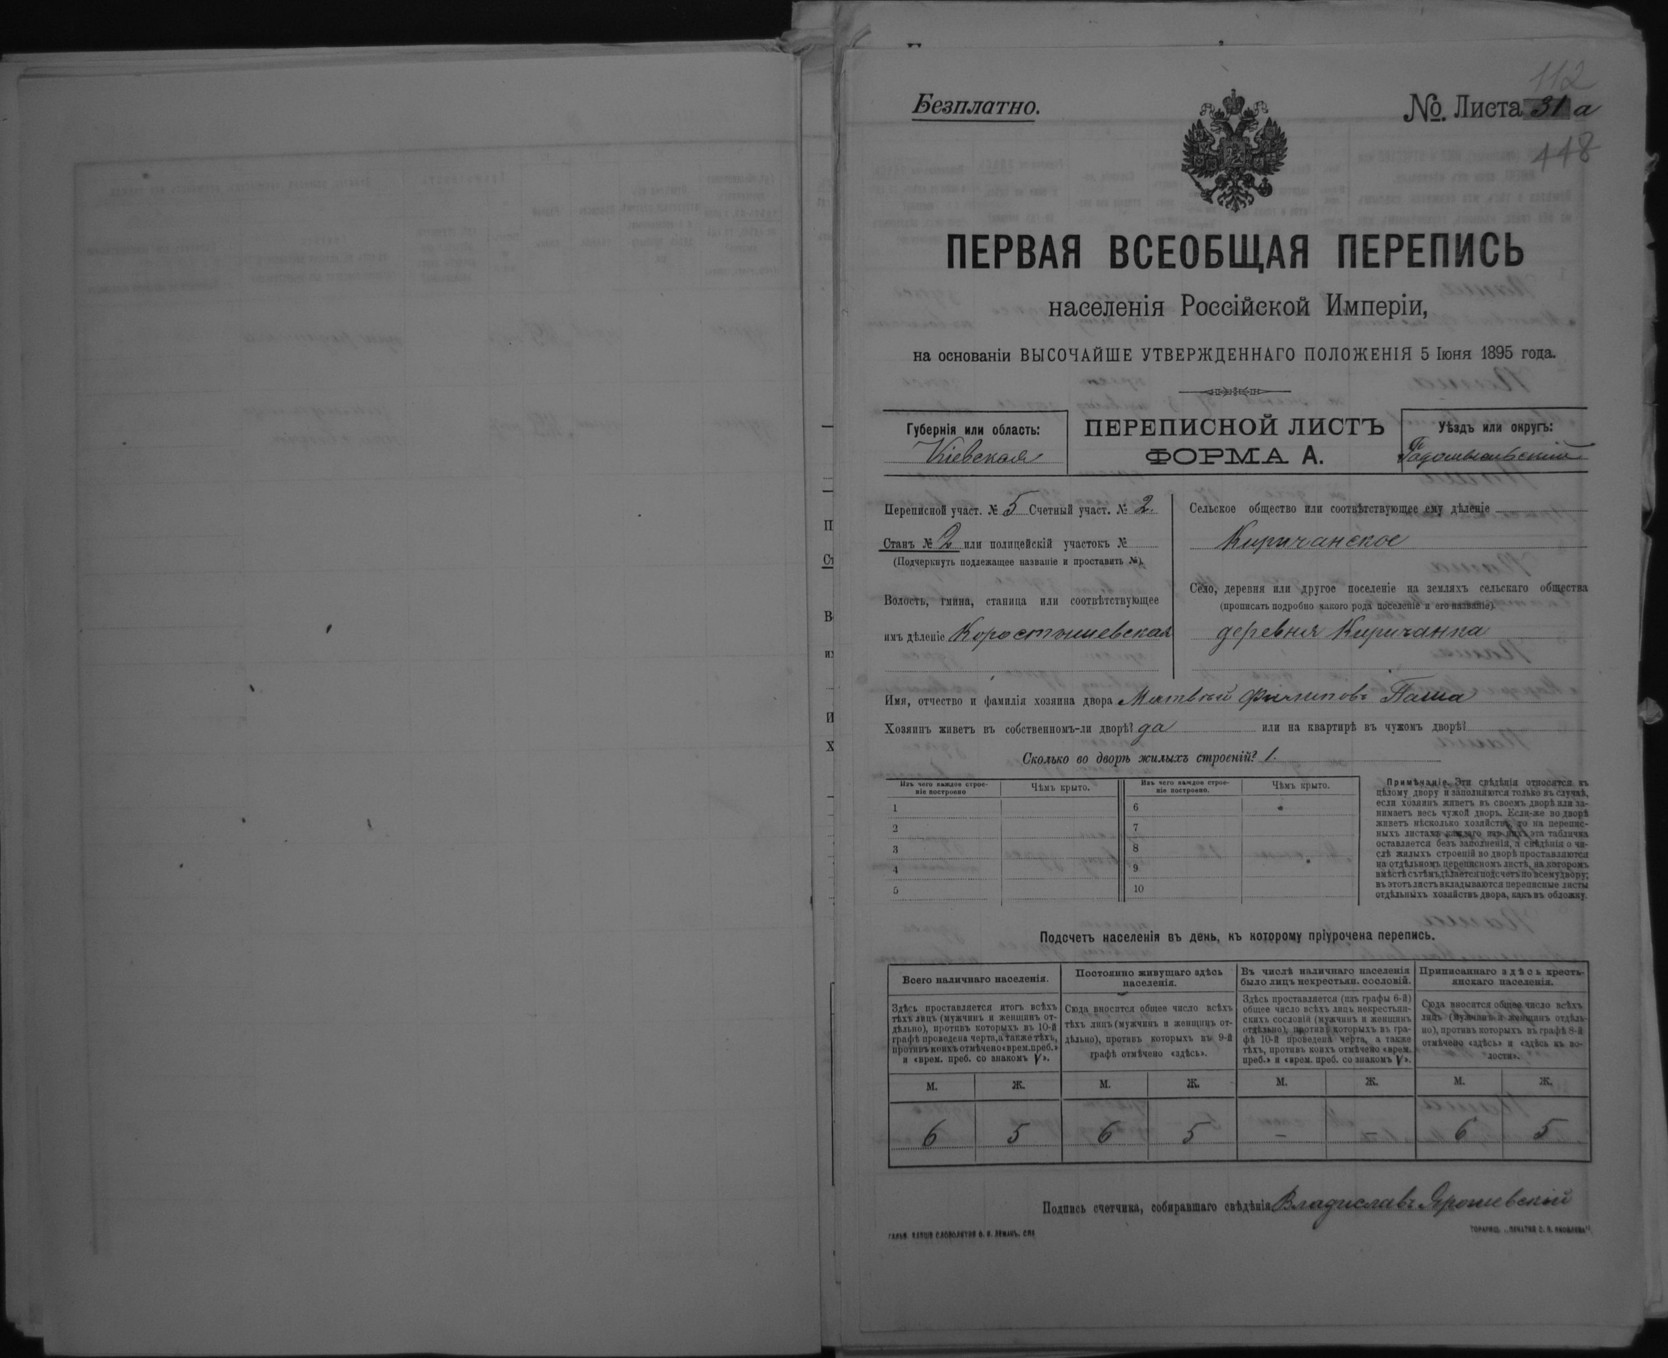 112
Безплатно.
№ Листа 31 а
448
ПЕРВАЯ ВСЕОБЩАЯ ПЕРЕПИСЬ
населенія Россійской Имперіи,
на основаніи ВЫСОЧАЙШЕ УТВЕРЖДЕННАГО ПОЛОЖЕНІЯ 5 Іюня 1895 года.
Губернія или область:
Кіевская
ПЕРЕПИСНОЙ ЛИСТЪ
ФОРМА А.
Уѣздъ или округъ:
Переписной участ. № 5 Счетный участ. № 2.
Станъ № 2 или полицейскій участокъ №
(Подчеркнуть подлежащее названіе и проставить №).
Волость, гмина, станица или соотвѣтствующее
имъ дѣленіе Коростышевская
Сельское общество или соотвѣтствующее ему дѣленіе
Киричанское
Село, деревня или другое поселеніе на земляхъ сельскаго общества
(прописать подробно какого рода поселеніе и его названіе).
деревня Киричанка
Имя, отчество и фамилія хозяина двора Матвѣй Филиповъ Паша
Хозяинъ живетъ въ собственномъ-ли дворѣ? да или на квартирѣ въ чужомъ дворѣ?
Сколько во дворѣ жилыхъ строеній? 1.
Изъ чего каждое строе-
ніе построено
Чѣмъ крыто.
Изъ чего каждое строе-
ніе построено.
Чѣмъ крыто.
1
2
3
4
5
6
7
8
9
10
Примѣчаніе. Эти свѣдѣнія относятся къ
цѣлому двору и заполняются только въ случаѣ,
если хозяинъ живетъ въ своемъ дворѣ или за-
нимаетъ весь чужой дворъ. Если-же во дворѣ
живетъ нѣсколько хозяйствъ, то на перепис-
ныхъ листахъ каждаго изъ нихъ эта табличка
оставляется безъ заполненія, а свѣдѣнія о чи-
слѣ жилыхъ строеній во дворѣ проставляются
на отдѣльномъ переписномъ листѣ, на которомъ
вмѣстѣ съ тѣмъ дѣлается подсчетъ по всему двору;
въ этотъ листъ вкладываются переписные листы
отдѣльныхъ хозяйствъ двора, какъ въ обложку.
Подсчетъ населенія въ день, къ которому пріурочена перепись.
Всего наличнаго населенія.
Здѣсь проставляется итогъ всѣхъ
тѣхъ лицъ (мужчинъ и женщинъ от-
дѣльно), противъ которыхъ въ 10-й
графѣ проведена черта, а также тѣхъ,
противъ коихъ отмѣчено «врем. преб.»
и «врем. преб. со знакомъ V».
Постоянно живущаго здѣсь
населенія.
Сюда вносится общее число всѣхъ
тѣхъ лицъ (мужчинъ и женщинъ от-
дѣльно), противъ которыхъ въ 9-й
графѣ отмѣчено «здѣсь».
Въ числѣ наличнаго населенія
было лицъ некрестьян. сословій.
Здѣсь проставляется (изъ графы 6-й)
общее число всѣхъ лицъ некрестьян-
скихъ сословій (мужчинъ и женщинъ
отдѣльно), противъ которыхъ въ гра-
фѣ 10-й проведена черта, а также
тѣхъ, противъ коихъ отмѣчено «врем.
преб.» и «врем. преб. со знакомъ V».
Приписаннаго здѣсь кресть-
янскаго населенія.
Сюда вносится общее число всѣхъ
лицъ (мужчинъ и женщинъ отдѣль-
но), противъ которыхъ въ графѣ 8-й
отмѣчено «здѣсь» и «здѣсь въ во-
лости».
М. Ж. М. Ж. М. Ж. М. Ж.
6 5 6 5 - - 6 5
Подпись счетчика, собиравшаго свѣдѣнія Владиславъ Ярошевскій